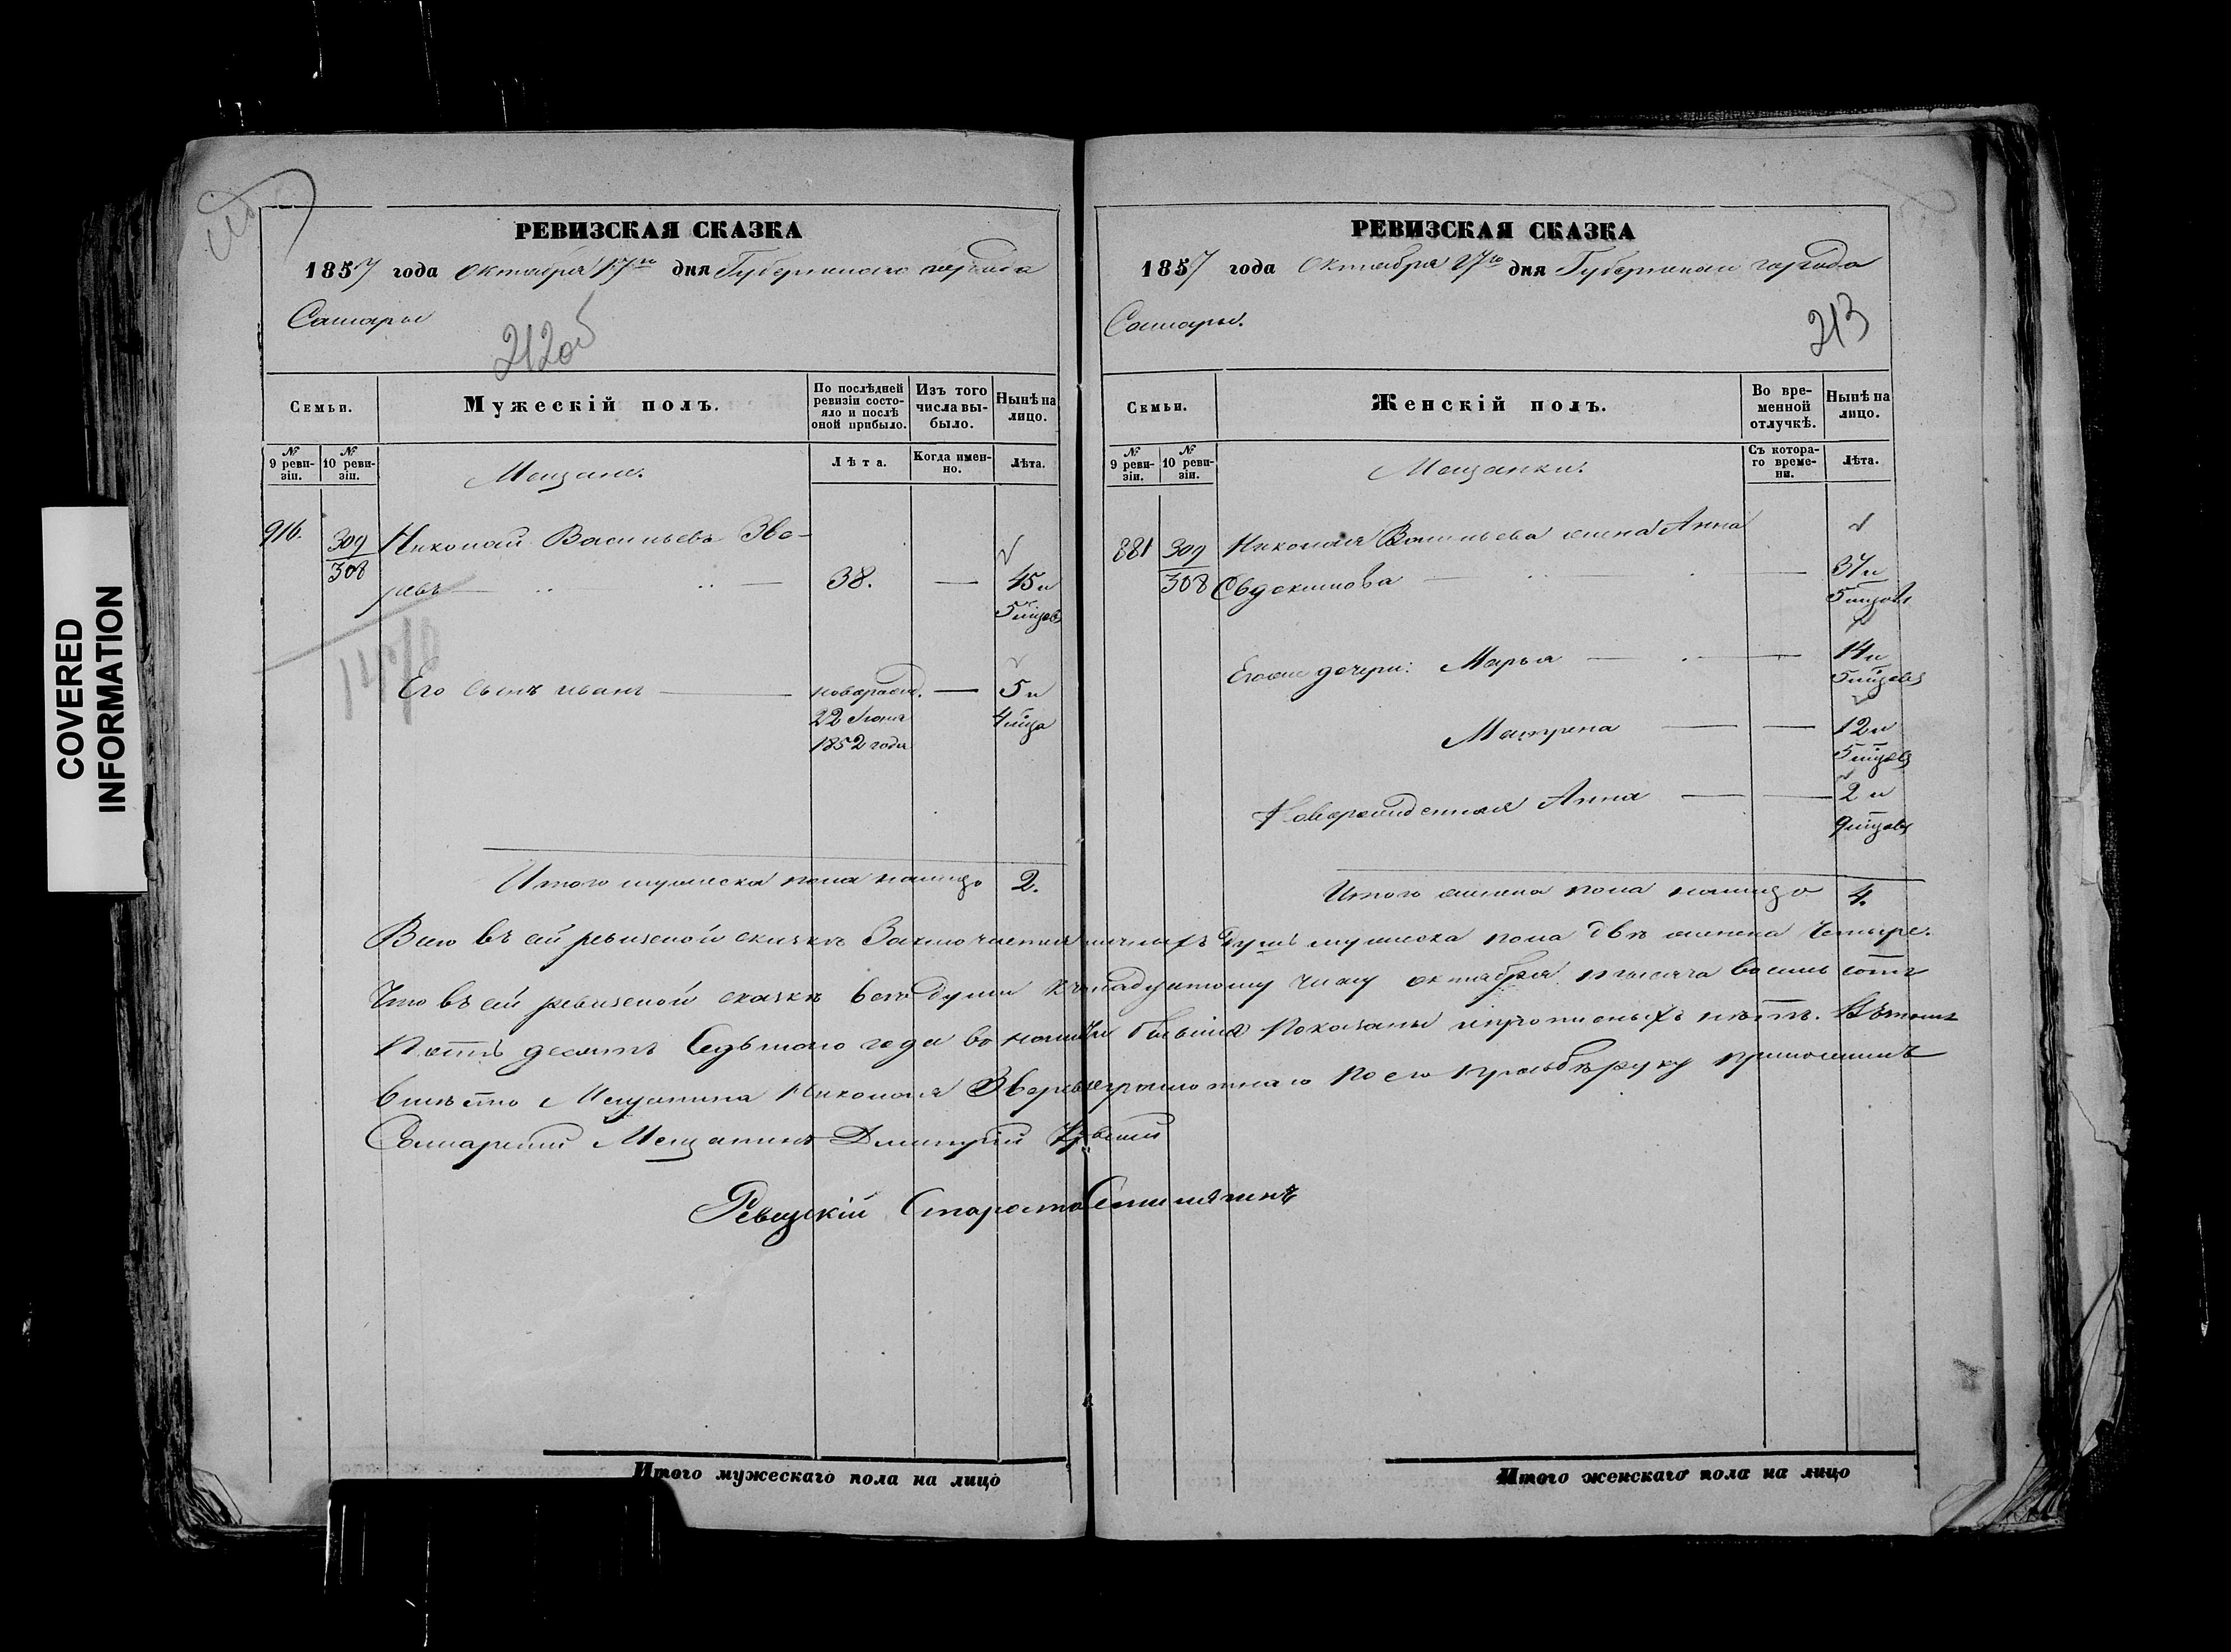 COVERED
INFORMATION
РЕВИЗСКАЯ СКАЗКА
1857 года Октября 17го дня Губернскаго города
Самары
212об
Семьи.
Мужескій полъ.
По послѣдней ревизіи состояло и послѣ оной прибыло.
Изъ того числа выбыло.
Нынѣ на лицо.
№ 9 ревизіи.
№ 10 ревизіи.
Мещане.
Лѣта.
Когда именно.
Лѣта.
916.
309
308
Николай Васильевъ Зве-
ревъ 38. — 45 и
5 мцовъ
Его сынъ иванъ — новорожд. — 5 и
22 Июня 4 мца
1852 года
Итого мужеска пола налицо 2.
РЕВИЗСКАЯ СКАЗКА
1857 года Октября 17го дня Губернскаго города
Самары.
213
Семьи.
Женскій полъ.
Во временной отлучкѣ.
Нынѣ на лицо.
№ 9 ревизіи.
№ 10 ревизіи.
Мещанки.
Съ котораго времени.
Лѣта.
881
309
308
Николая Васильева жена Анна
Овдокимова — 37 и
5 мцовъ
Егоже дочери: Марья — 14 и
5 мцовъ
Матрена — 12 и
5 мцовъ
Новорожденная Анна — 2 и
9 мцовъ
Итого женска пола налицо 4.
Всего въ сей ревизской сказкѣ Заключается наличныхъ душъ мужеска пола двѣ женска Четыре.
Что въ сей ревизской сказкѣ всѣ души числу октября тысяча восемь сотъ
Пять десятъ Седьмаго года во Показаны и прописныхъ нѣтъ. Въ томъ
вмѣсто Мещанина Николая Зверева неграмотнаго по его прозьбѣ руку приложилъ
Самарский Мещанинъ Дмитрий
Ревизскій Староста
Итого мужескаго пола на лицо
Итого женскаго пола на лицо